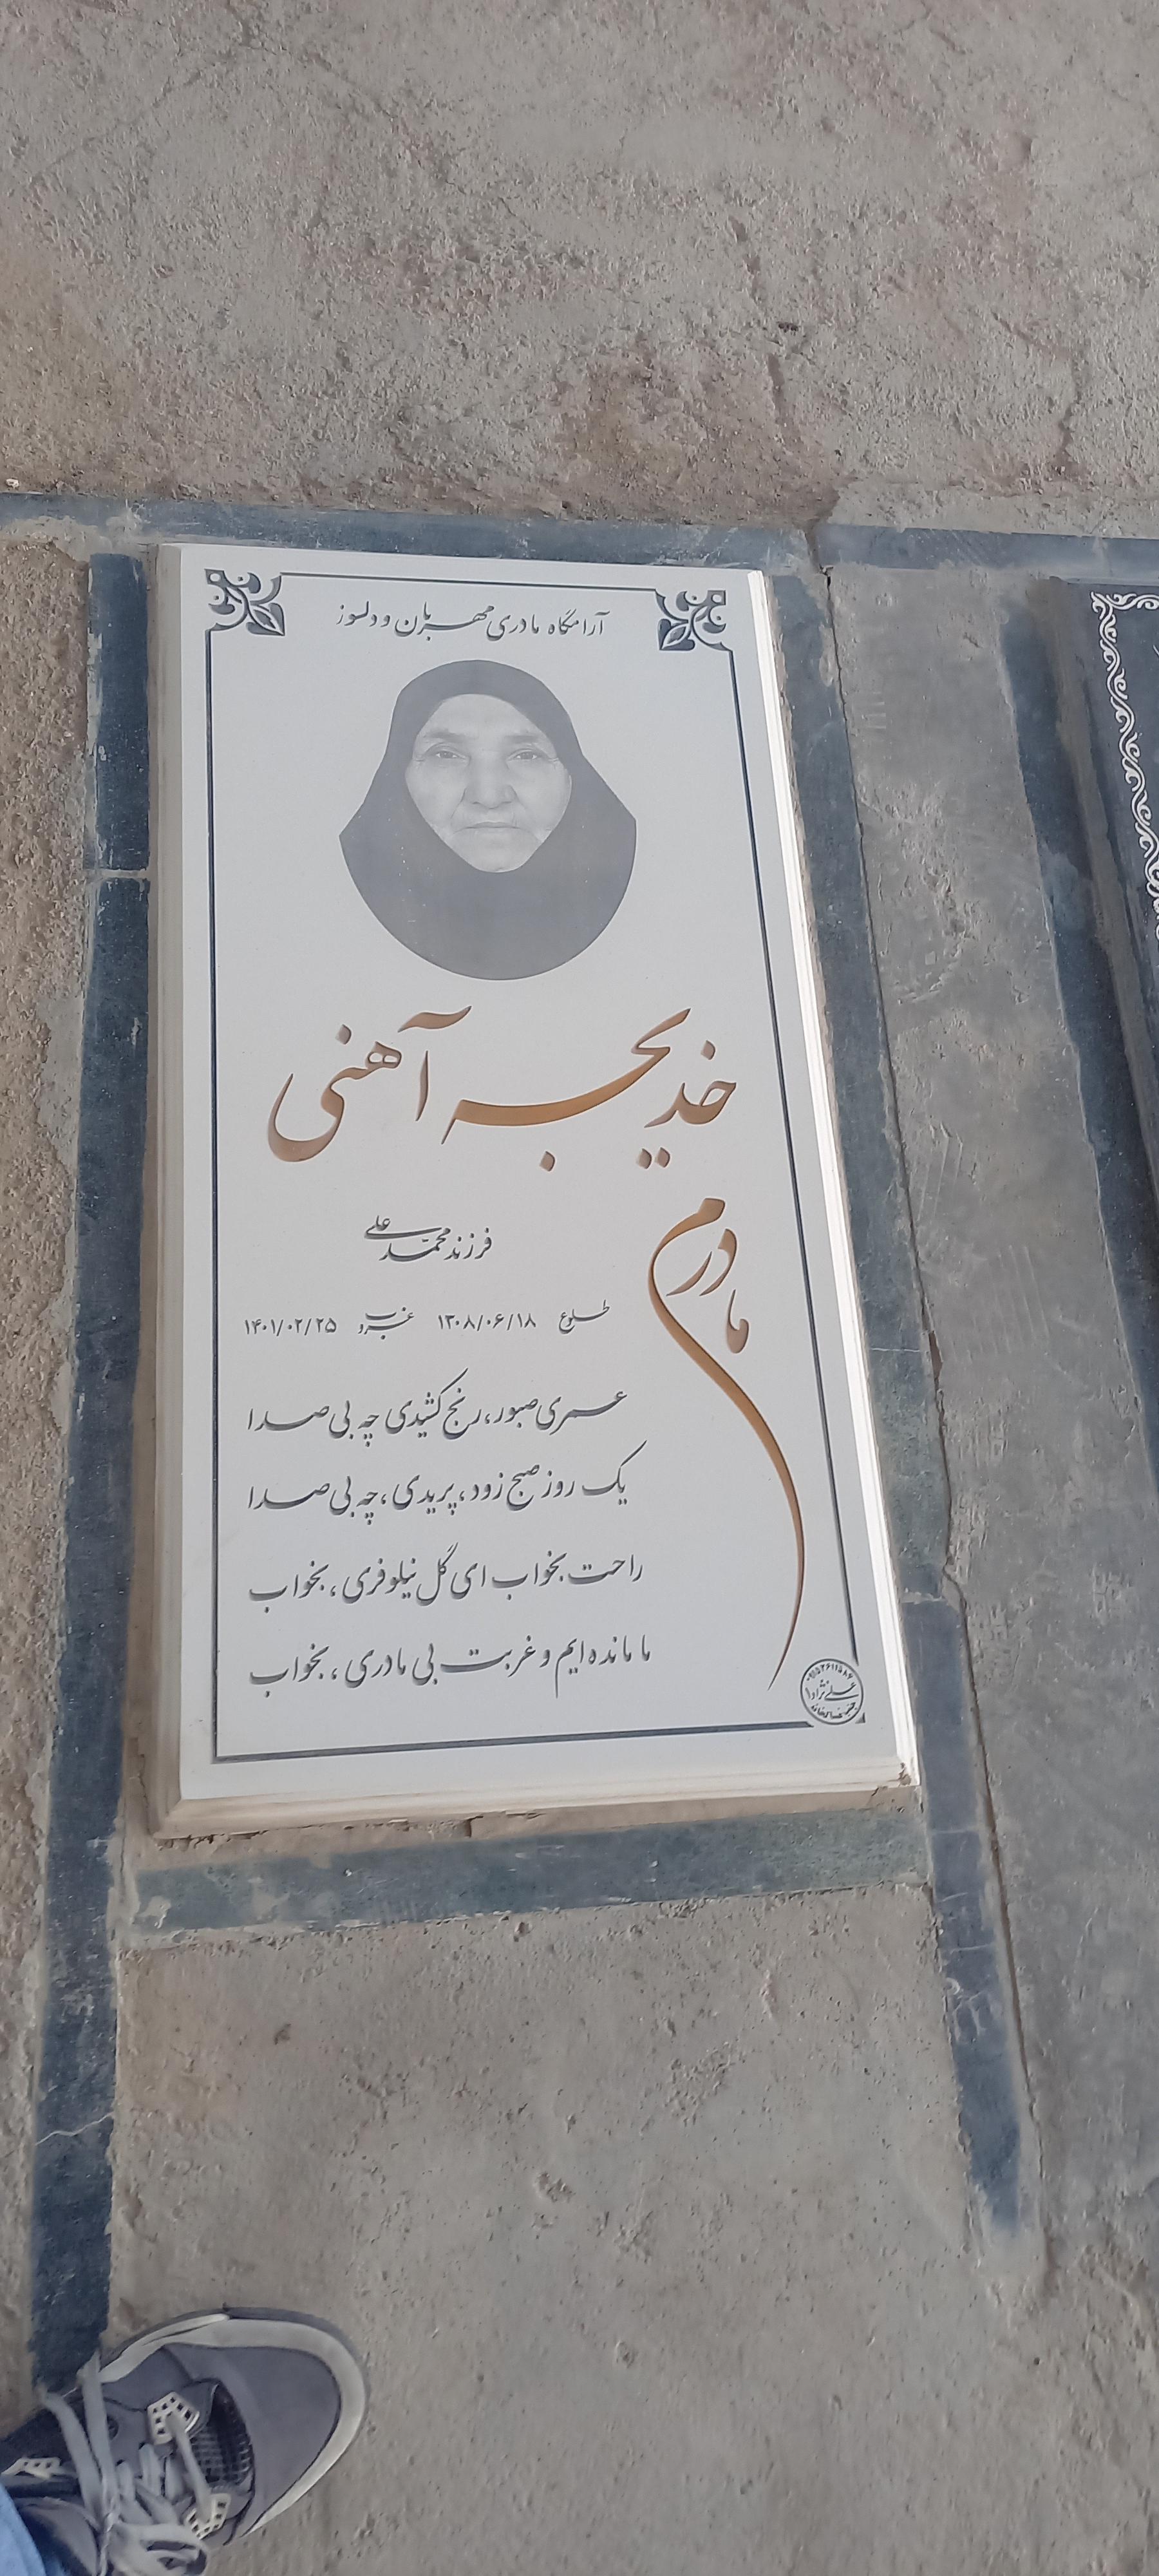 آرامگاه مادری مهربان و دلسوز
خدیجه آهنی
مادرم
فرزند محمدعلی
طلوع ۱۳۰۸/۰۶/۱۸ غروب ۱۴۰۱/۰۲/۲۵
عمری صبور، رنج کشیدی چه بی صدا
یک روز صبح زود، پریدی، چه بی صدا
راحت بخواب ای گل نیلوفری، بخواب
ما مانده ایم و غربت بی مادری، بخواب
علی نژاد